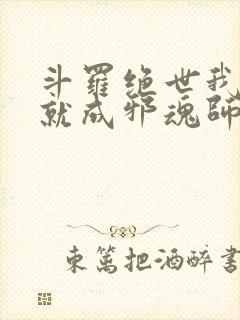 斗羅绝世我
就成邪魂師
東篱把酒醉書